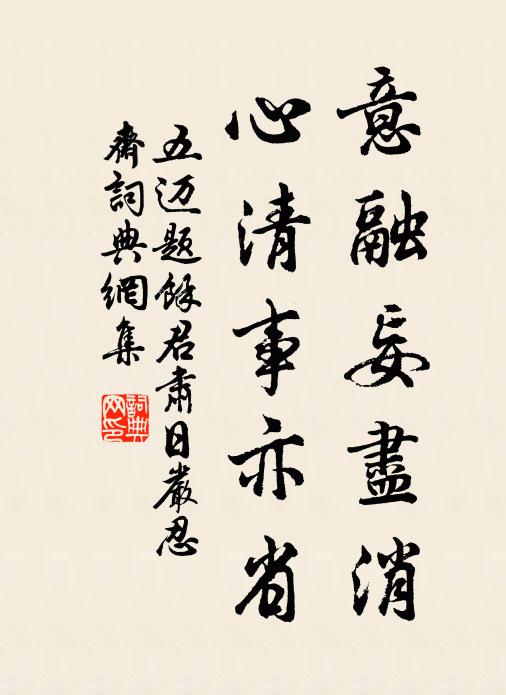 意融妄盡消
心清事亦省
五迈题餘君肅日嚴忍
齋詞典網集
詞典網印